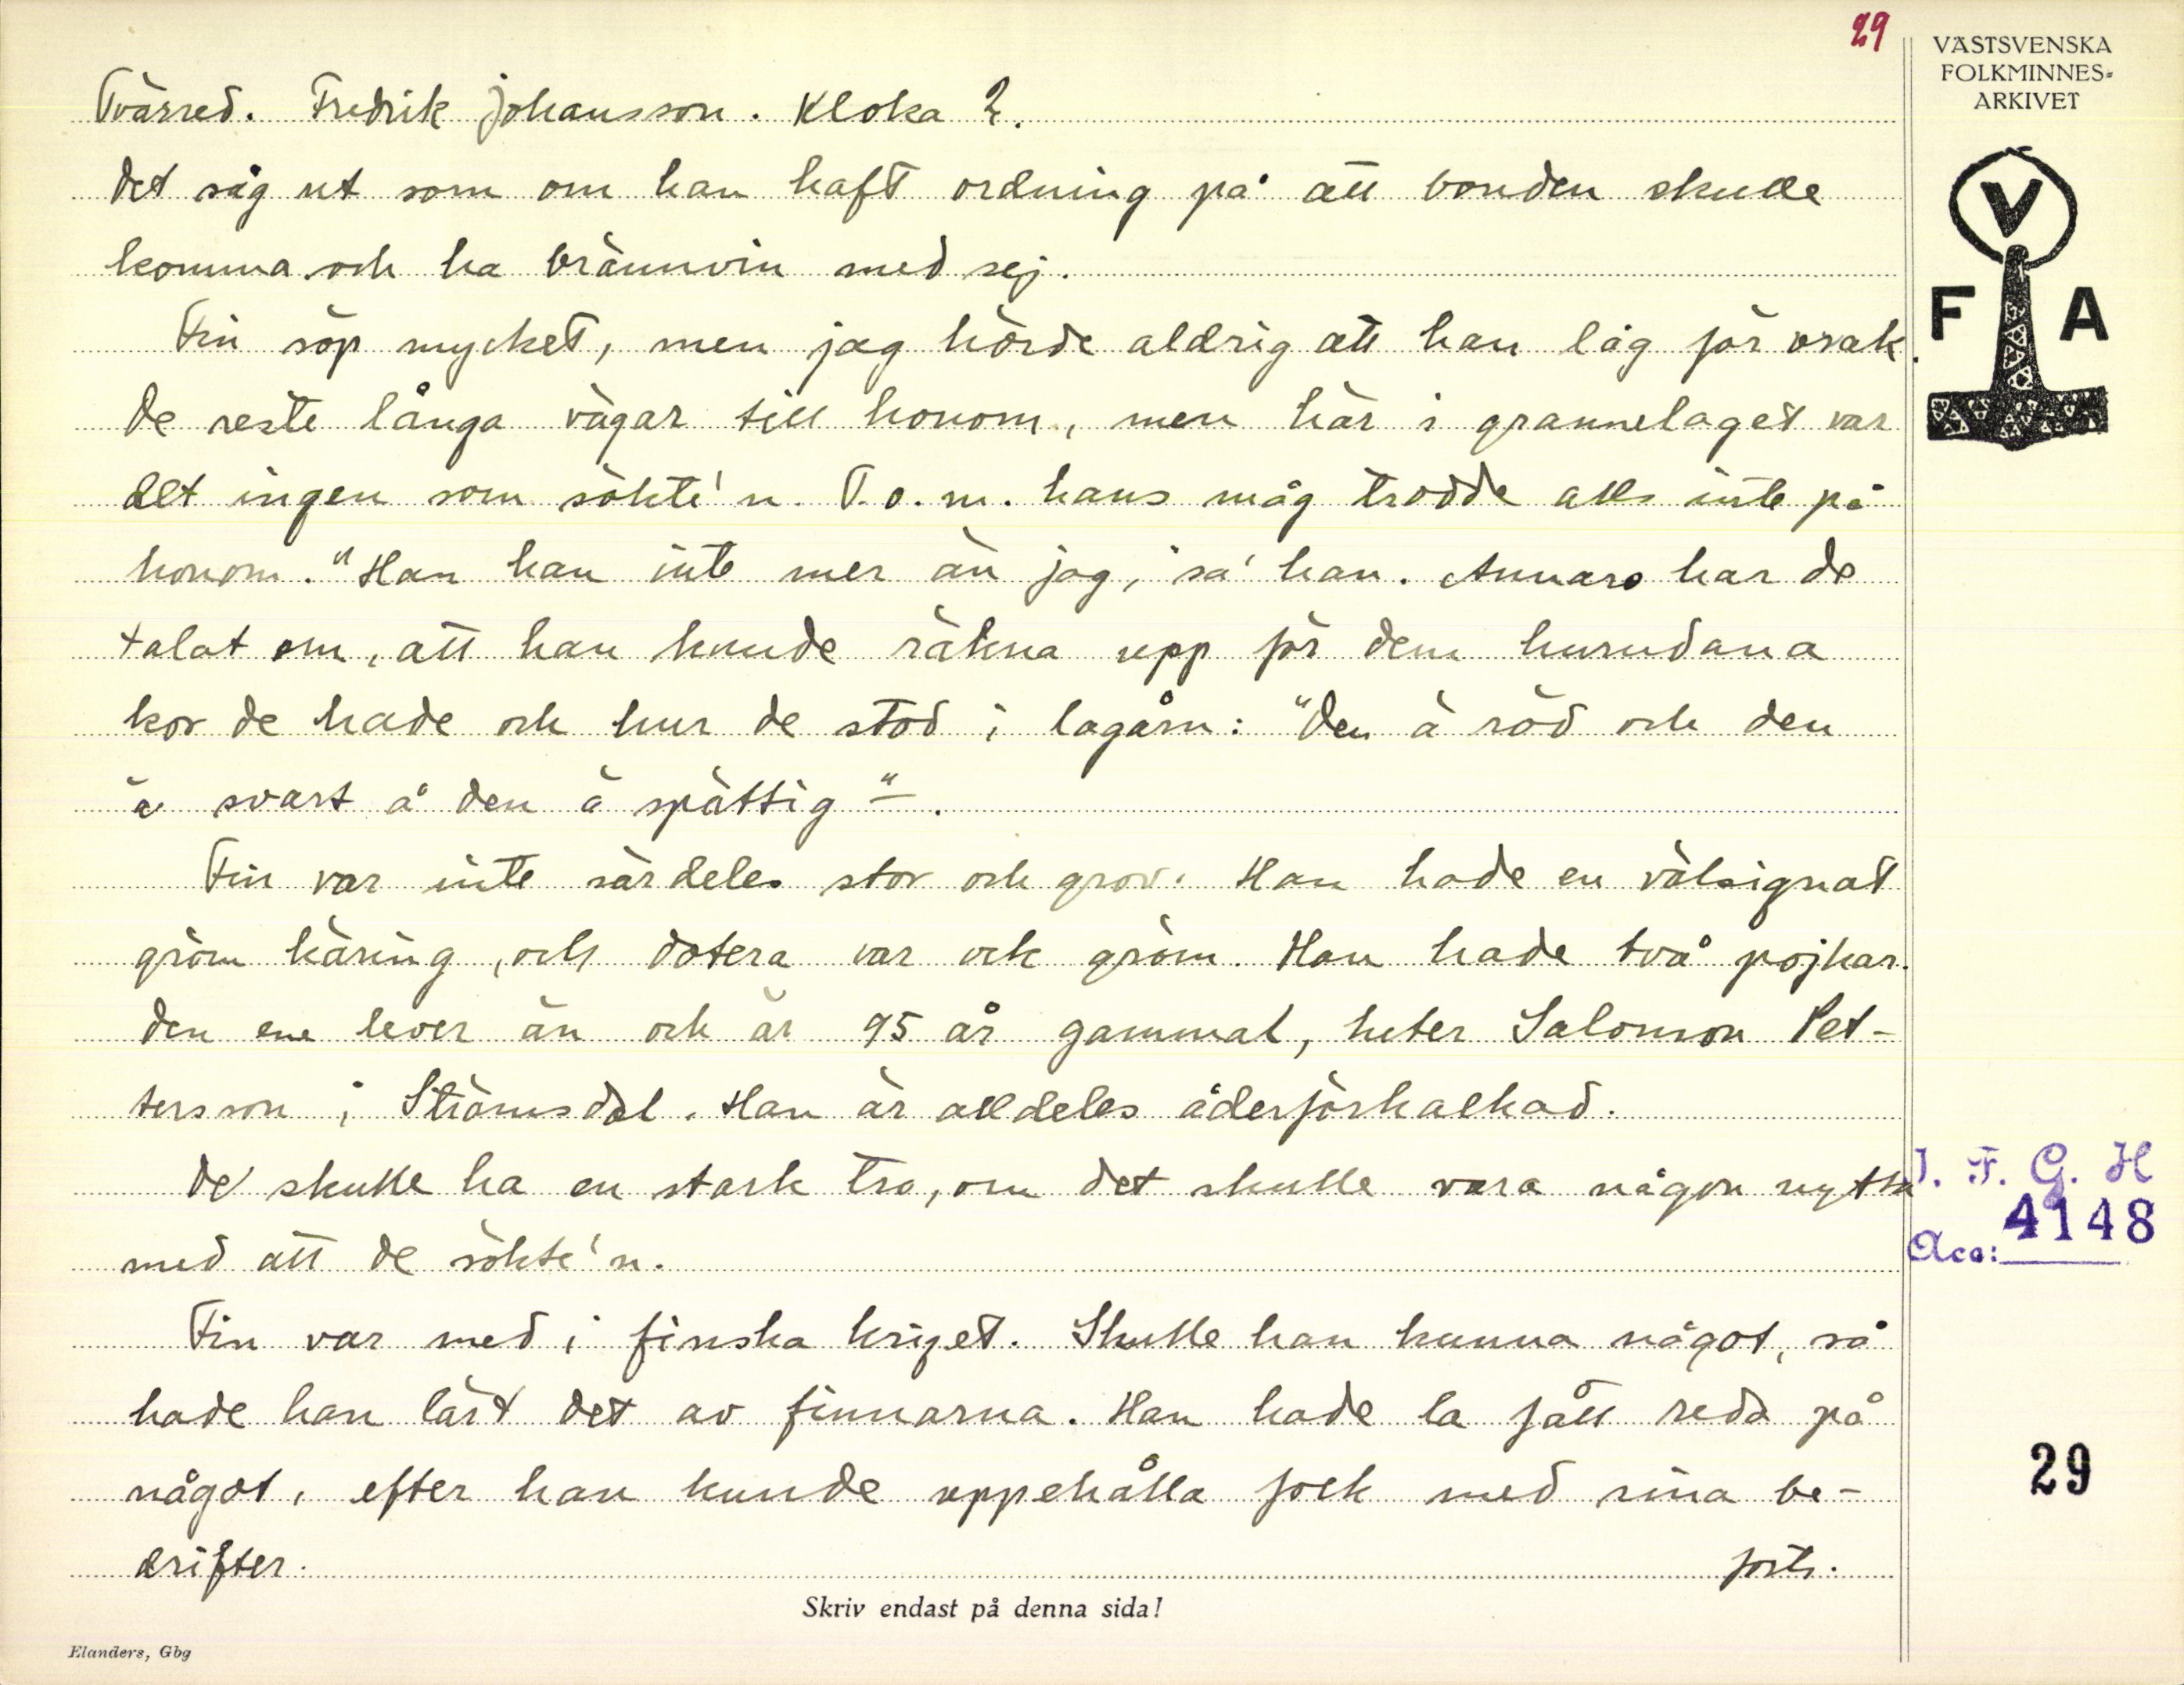 29
VÄSTSVENSKA
FOLKMINNES-
ARKIVET
Tvärred. Fredrik Johansson. Kloka 2.
Det såg ut som om han haft ordning på att bonden skulle
komma och ha brännvin med sej.
Fin söp mycket, men jag hörde aldrig att han låg för orak.
De reste långa vägar till honom, men här i grannelaget var
det ingen som sökte'n. T.o.m. hans måg trodde alls inte på
honom. "Han kan inte mer än jag," sa' han. Annars har de
talat om, att han kunde räkna upp för dem hurudana
kor de hade och hur de stod i lagårn: "Den ä röd och den
ä svart å den ä spättig".
Fin var inte särdeles stor och grov. Han hade en välsignat
gröm käring, och dotera var ock gröm. Han hade två pojkar.
Den ene lever än och är 95 år gammal, heter Salomon Pet-
tersson i Strömsdal. Han är alldeles åderförkalkad.
De skulle ha en stark tro, om det skulle vara någon nytta
med att de sökte'n.
Fin var med i finska kriget. Skulle han kunna något, så
hade han lärt det av finnarna. Han hade la fått reda på
något, efter han kunde uppehålla folk med sina be-
drifter.
forts.
V
F A
I. F. G. H
Acc: 4148
29
Skriv endast på denna sida!
Elanders, Gbg